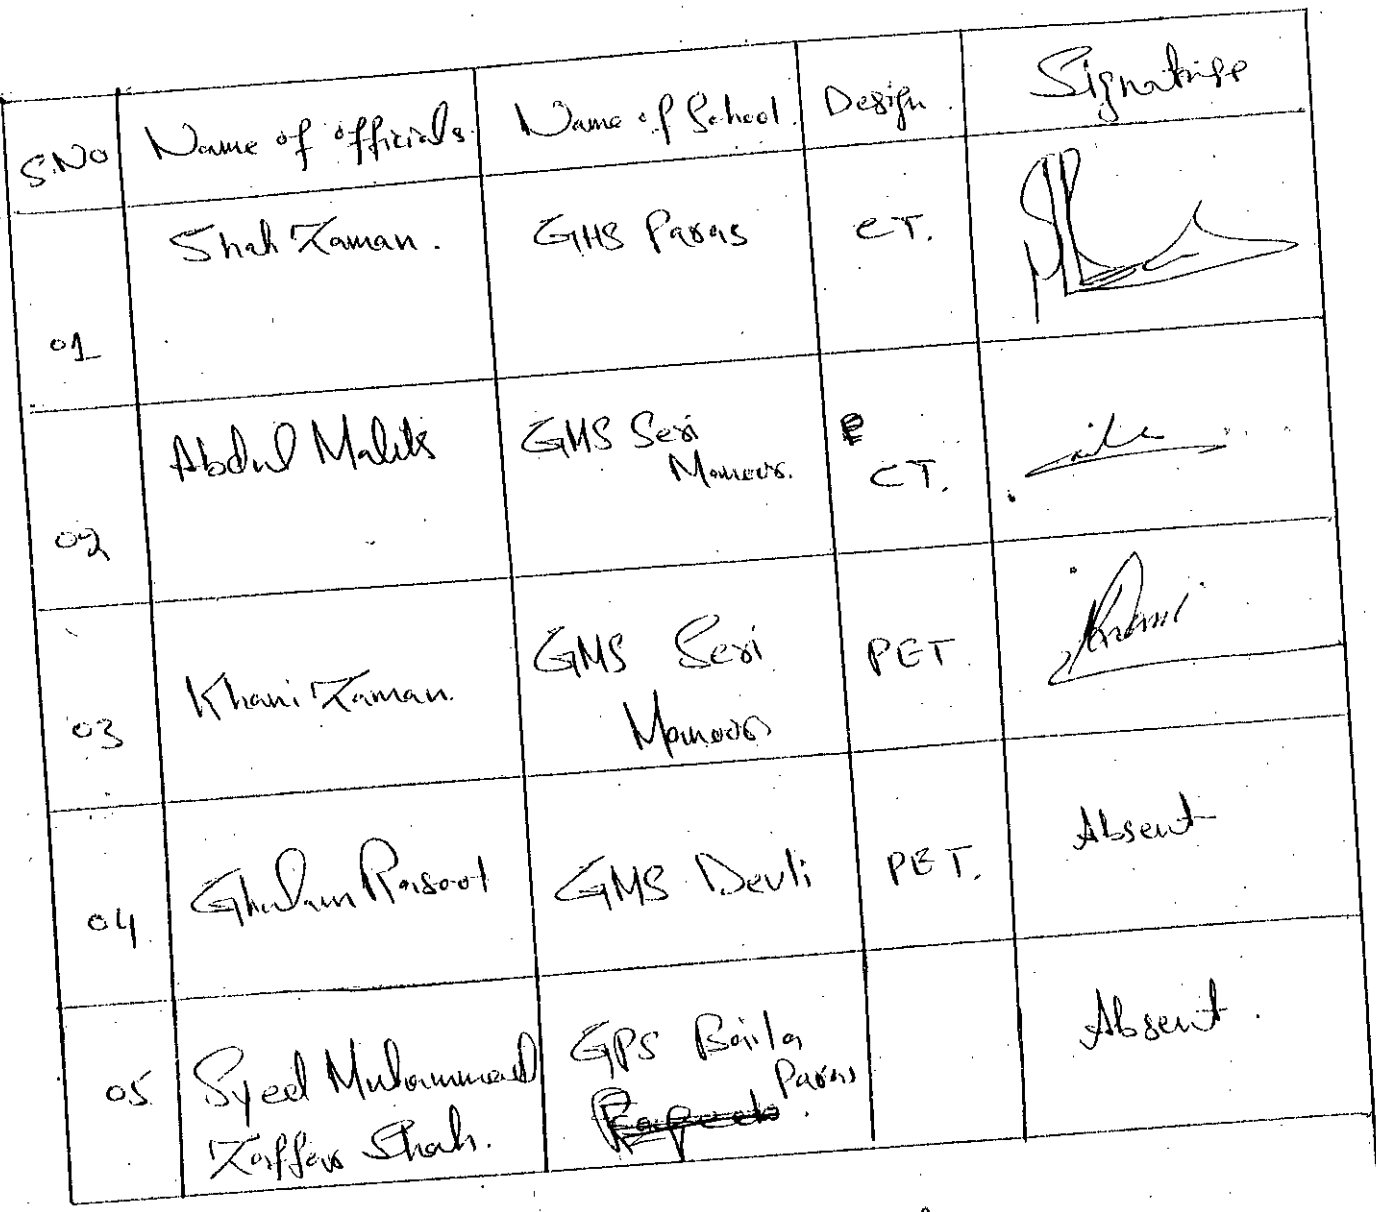 S.NO Name of officials Name of School Design. Signature
01 Shah Zaman. GHS Paras CT.
02 Abdul Malik GMS Seri CT.
Manoor.
03 Khani Zaman. GMS Seri PET.
Manoor
04 Ghulam Rasool GMS Devli PET. Absent
05 Syed Muhammad GPS Baila Absent.
Zaffar Shah. Paras